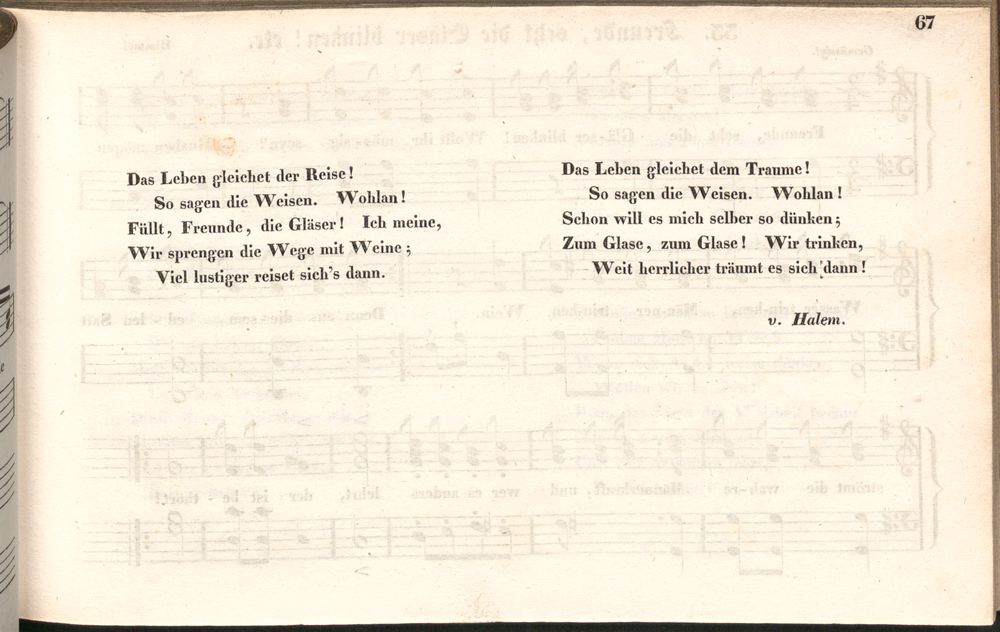 67
Das Leben gleichet der Reise!
So sagen die Weisen. Wohlan!
Füllt, Freunde, die Gläser! Ich meine,
Wir sprengen die Wege mit Weine;
Viel lustiger reiset sich's dann.
Das Leben gleichet dem Traume!
So sagen die Weisen. Wohlan!
Schon will es mich selber so dünken;
Zum Glase, zum Glase! Wir trinken,
Weit herrlicher träumt es sich dann!
v. Halem.